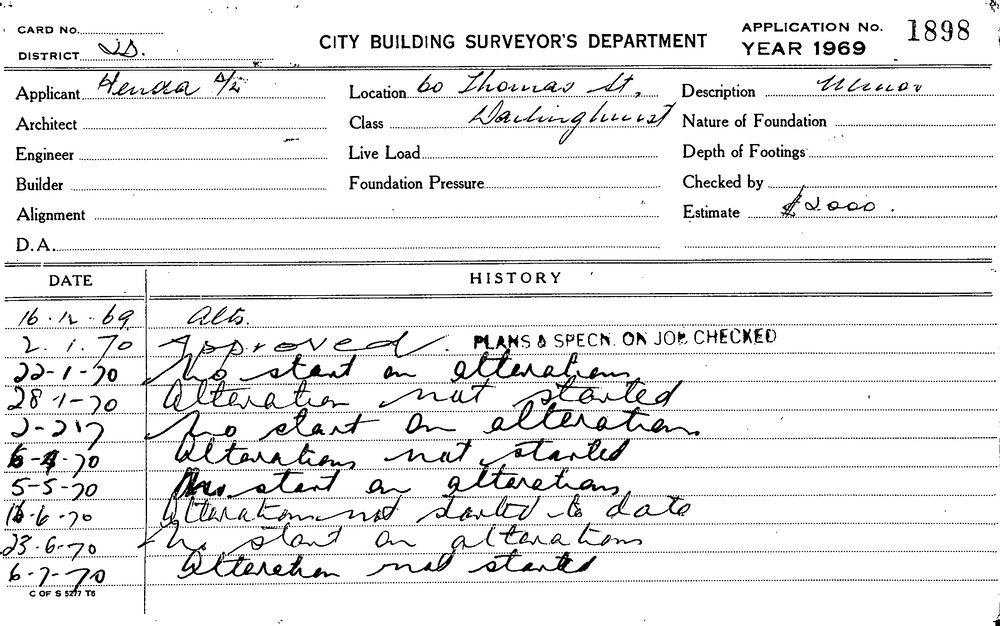 CARD No.
DISTRICT 2S.
CITY BUILDING SURVEYOR'S DEPARTMENT
APPLICATION No. 1898
YEAR 1969
Applicant
Location 60 Thomas St,
Description Minor
Architect
Class Darlinghurst
Nature of Foundation
Engineer
Live Load
Depth of Footings
Builder
Foundation Pressure
Checked by
Alignment
Estimate $2000.
D.A.
DATE HISTORY
16.12.69 Alts.
2.1.70 Approved. PLANS & SPECN. ON JOB CHECKED
22-1-70 No start on alterations
28-1-70 Alteration not started
No start on alterations
6-4-70 Alterations not started
5-5-70 No start on alterations
16-6-70 Alterations not started to date
23.6-70 No start on alterations
6-7-70 Alteration not started
C OF S 5277 T6